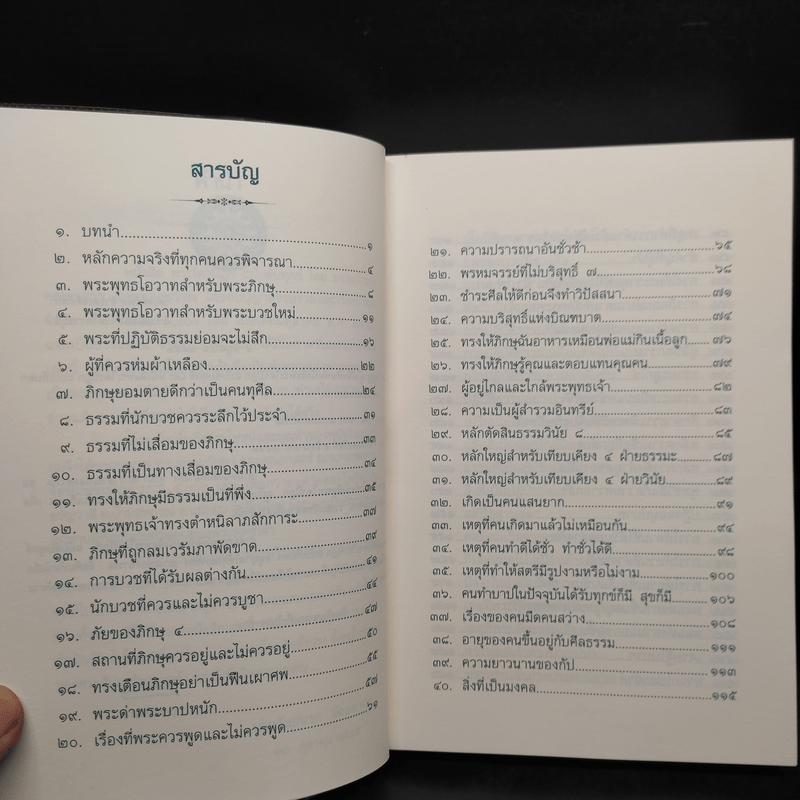 สารบัญ
๑. บทนำ ๑
๒. หลักความจริงที่ทุกคนควรพิจารณา ๔
๓. พระพุทธโอวาทสำหรับพระภิกษุ ๘
๔. พระพุทธโอวาทสำหรับพระบวชใหม่ ๑๑
๕. พระที่ปฏิบัติธรรมย่อมจะไม่สึก ๑๖
๖. ผู้ที่ควรห่มผ้าเหลือง ๒๒
๗. ภิกษุยอมตายดีกว่าเป็นคนทุศีล ๒๔
๘. ธรรมที่นักบวชควรระลึกไว้ประจำ ๓๑
๙. ธรรมที่ไม่เสื่อมของภิกษุ ๓๓
๑๐. ธรรมที่เป็นทางเสื่อมของภิกษุ ๓๔
๑๑. ทรงให้ภิกษุมีธรรมเป็นที่พึ่ง ๓๕
๑๒. พระพุทธเจ้าทรงตำหนิลาภสักการะ ๓๗
๑๓. ภิกษุที่ถูกลมเวรัมภาพัดขาด ๓๙
๑๔. การบวชที่ได้รับผลต่างกัน ๔๑
๑๕. นักบวชที่ควรและไม่ควรบูชา ๔๔
๑๖. ภัยของภิกษุ ๔ ๔๗
๑๗. สถานที่ภิกษุควรอยู่และไม่ควรอยู่ ๕๐
๑๘. ทรงเตือนภิกษุอย่าเป็นฟืนเผาศพ ๕๕
๑๙. พระด่าพระบาปหนัก ๕๗
๒๐. เรื่องที่พระควรพูดและไม่ควรพูด ๖๑
๒๑. ความปรารถนาอันชั่วช้า ๖๕
๒๒. พรหมจรรย์ที่ไม่บริสุทธิ์ ๗ ๖๘
๒๓. ชำระศีลให้ดีก่อนจึงทำวิปัสสนา ๗๑
๒๔. ความบริสุทธิ์แห่งบิณฑบาต ๗๔
๒๕. ทรงให้ภิกษุฉันอาหารเหมือนพ่อแม่กินเนื้อลูก ๗๖
๒๖. ทรงให้ภิกษุรู้คุณและตอบแทนคุณคน ๗๙
๒๗. ผู้อยู่ไกลและใกล้พระพุทธเจ้า ๘๒
๒๘. ความเป็นผู้สำรวมอินทรีย์ ๘๓
๒๙. หลักตัดสินธรรมวินัย ๘ ๘๕
๓๐. หลักใหญ่สำหรับเทียบเคียง ๔ ฝ่ายธรรมะ ๘๗
๓๑. หลักใหญ่สำหรับเทียบเคียง ๔ ฝ่ายวินัย ๘๙
๓๒. เกิดเป็นคนแสนยาก ๙๑
๓๓. เหตุที่คนเกิดมาแล้วไม่เหมือนกัน ๙๔
๓๔. เหตุที่คนทำดีได้ชั่ว ทำชั่วได้ดี ๙๘
๓๕. เหตุที่ทำให้สตรีมีรูปงามหรือไม่งาม ๑๐๐
๓๖. คนทำบาปในปัจจุบันได้รับทุกข์ก็มี สุขก็มี ๑๐๖
๓๗. เรื่องของคนมืดคนสว่าง ๑๐๘
๓๘. อายุของคนขึ้นอยู่กับศีลธรรม ๑๑๑
๓๙. ความยาวนานของกัป ๑๑๓
๔๐. สิ่งที่เป็นมงคล ๑๑๕